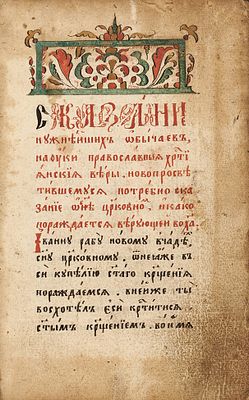 Сказани
нужнѣйшихъ ѡбычаевъ,
наѹки православныѧ хрⷭ҇ті
ꙗнскиѧ вѣры, новопросвѣ
тившемусѧ потребно ска
заніе ѡ црковнои, и како
пораждаетсѧ вѣрующеи во ха.
Іванну рабу новому вчадѣ,
сну црковному, ѡнеꙗже въ
си купѣлію ст҃аго крщеніѧ
пораждаемсѧ. внейже ты
восхотѣлъ еси крⷭ҇титисѧ
ст҃ымъ крщеніемъ. во имѧ